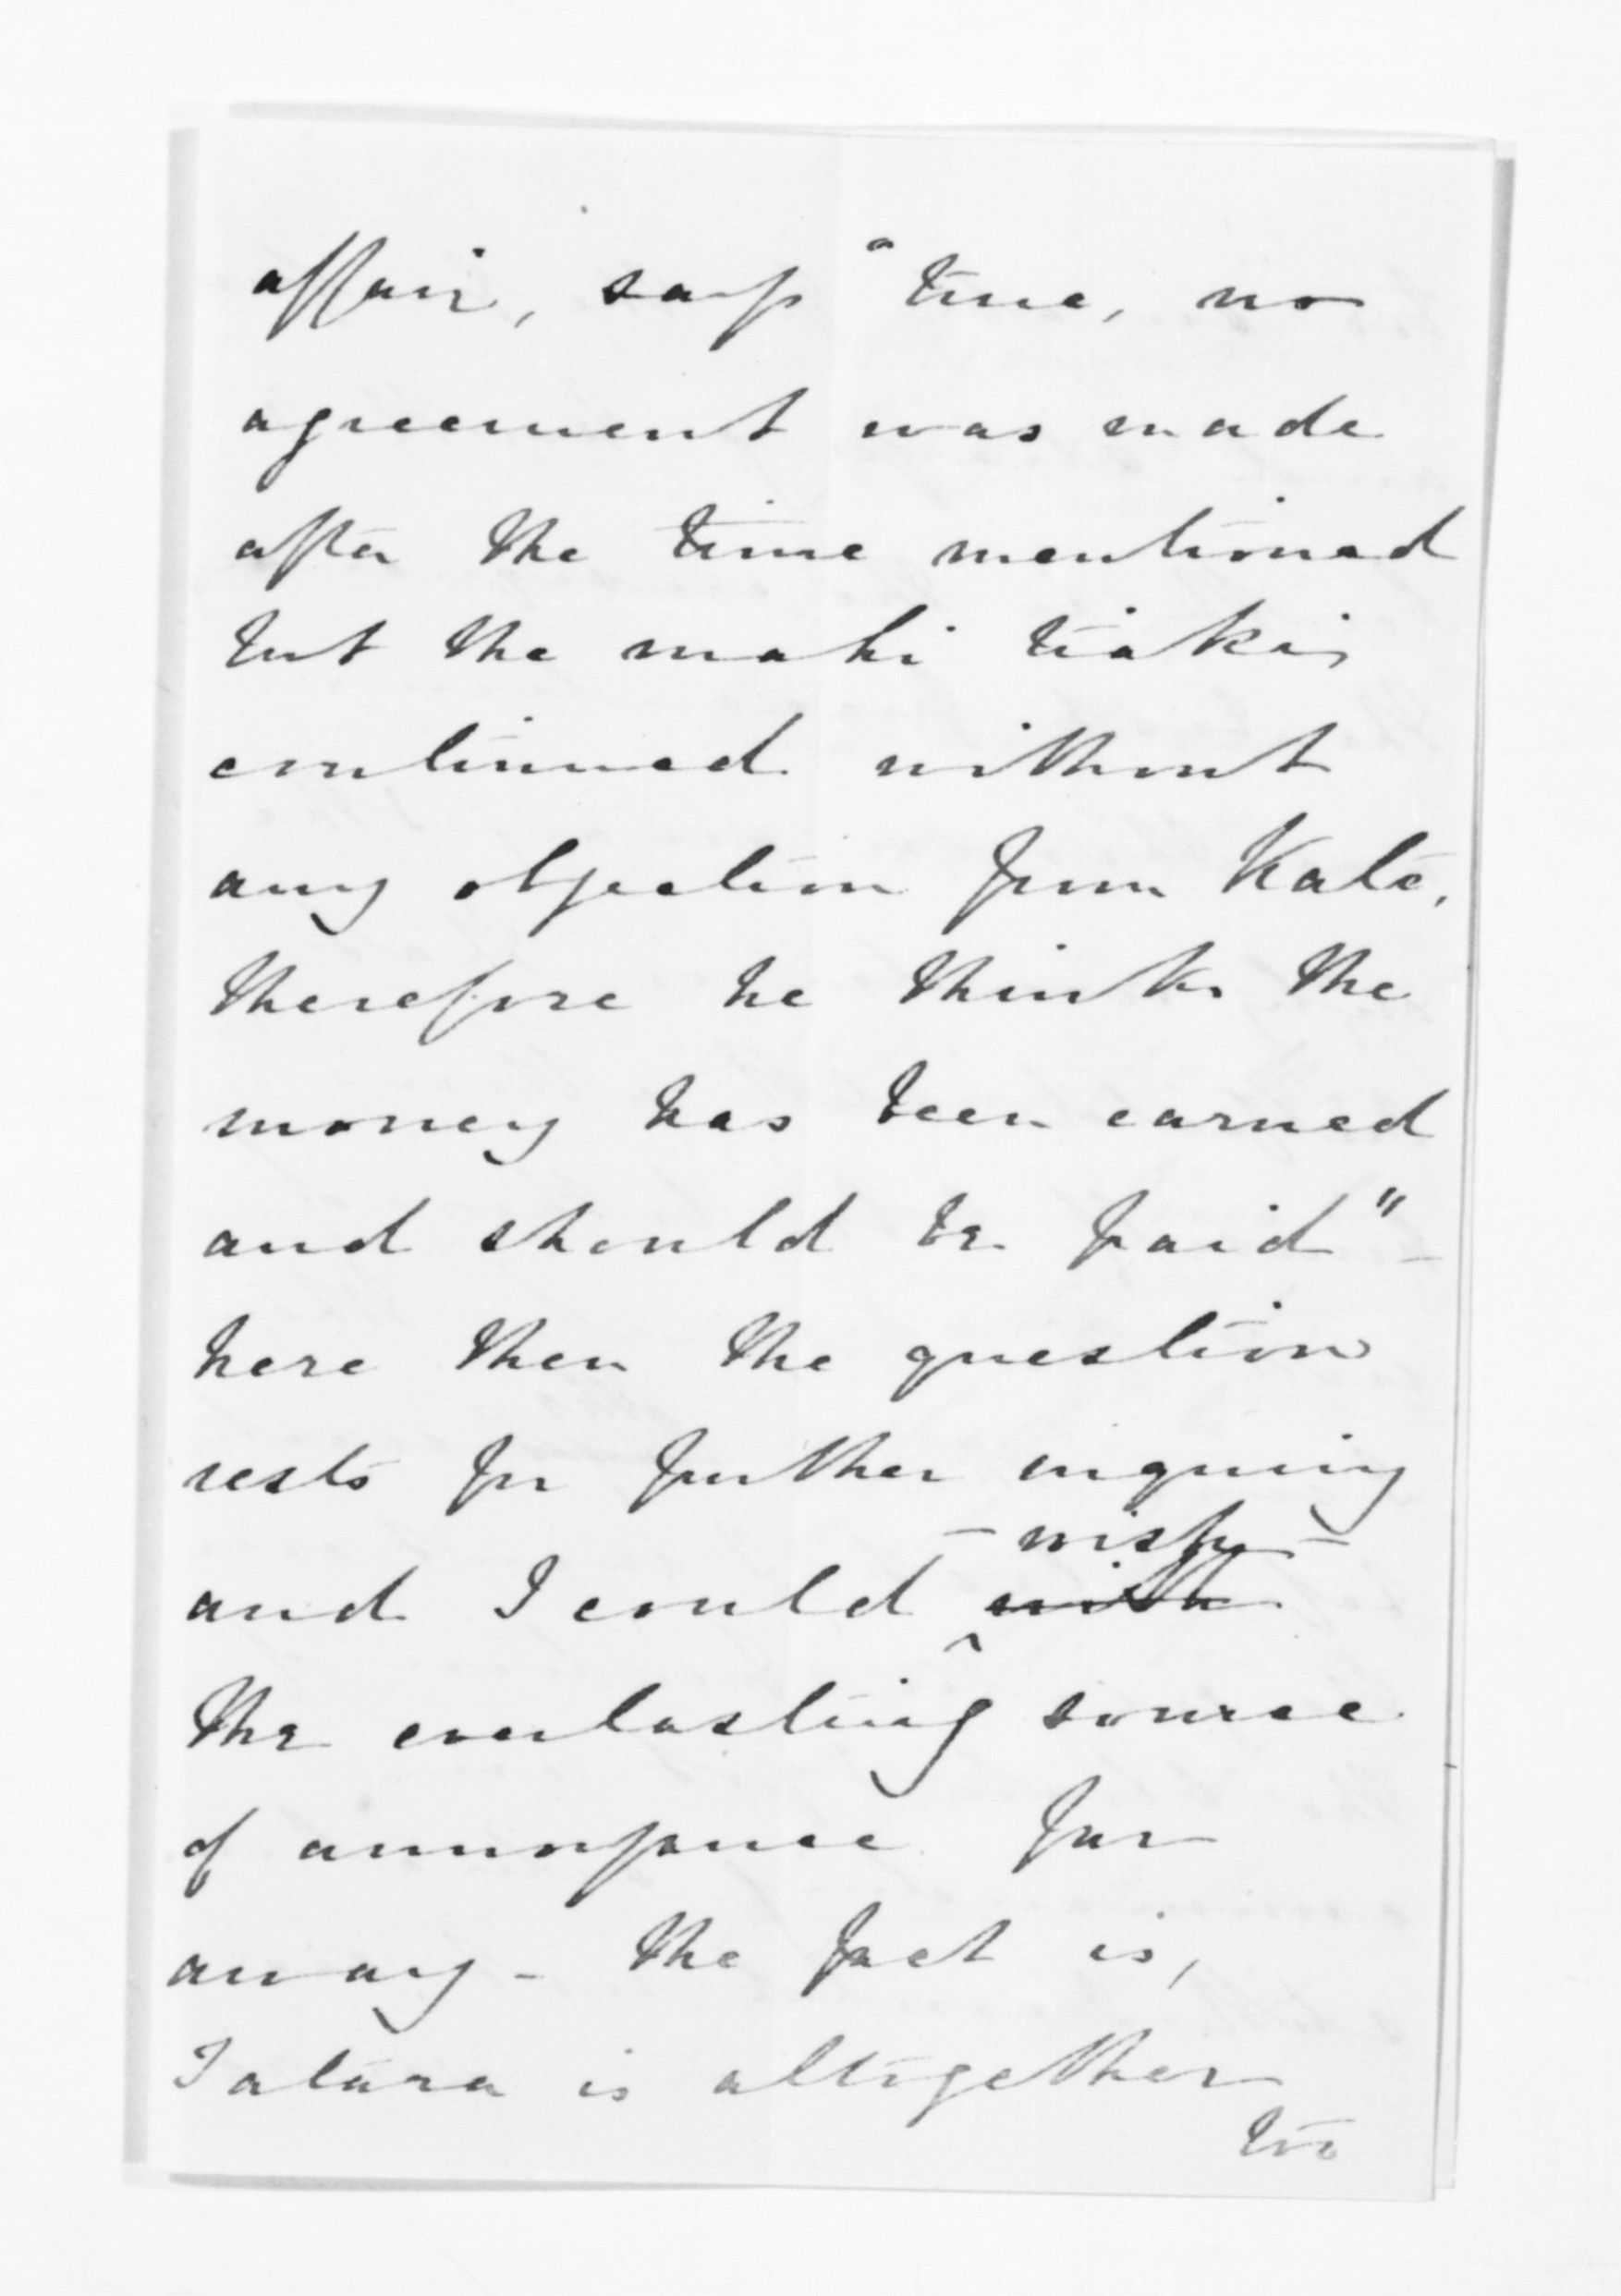 affair, says "true, no
agreement was made
after the time mentioned
but the mahi tiaki
continued without
any objection from Kate,
therefore he thinks the
money has been earned
and should be paid" -
here then the question
rests for further inquiry
- wish -
and I could ^ wish
the everlasting source
of annoyance far
away - the fact is,
Tatara is altogether
too